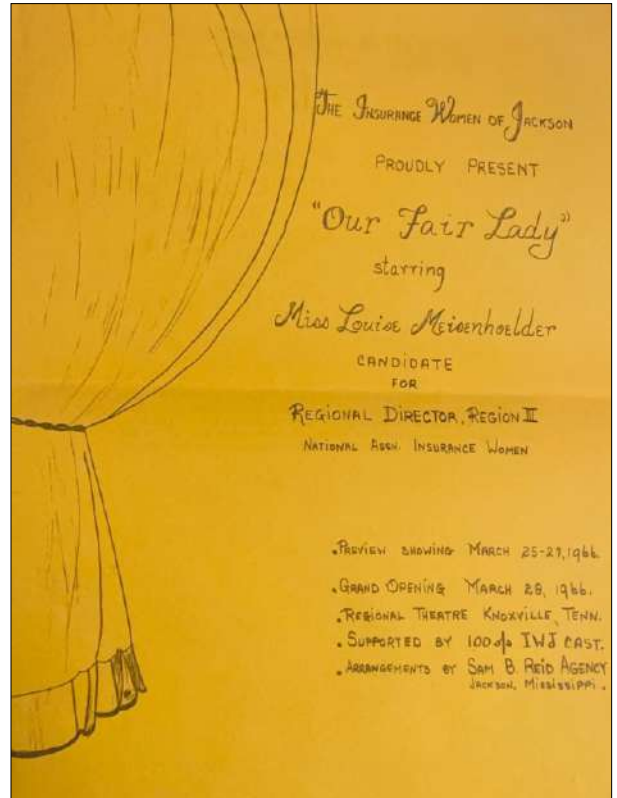 The Insurance Women of Jackson
Proudly Present
"Our Fair Lady"
starring
Miss Louise Meisenhoelder
CANDIDATE
FOR
REGIONAL DIRECTOR, REGION III
NATIONAL ASSN. INSURANCE WOMEN
. PREVIEW SHOWING MARCH 25-27, 1966.
. GRAND OPENING MARCH 28, 1966.
. REGIONAL THEATRE KNOXVILLE, TENN.
. SUPPORTED BY 100% IWJ CAST.
. ARRANGEMENTS BY SAM B. REID AGENCY
JACKSON, MISSISSIPPI.